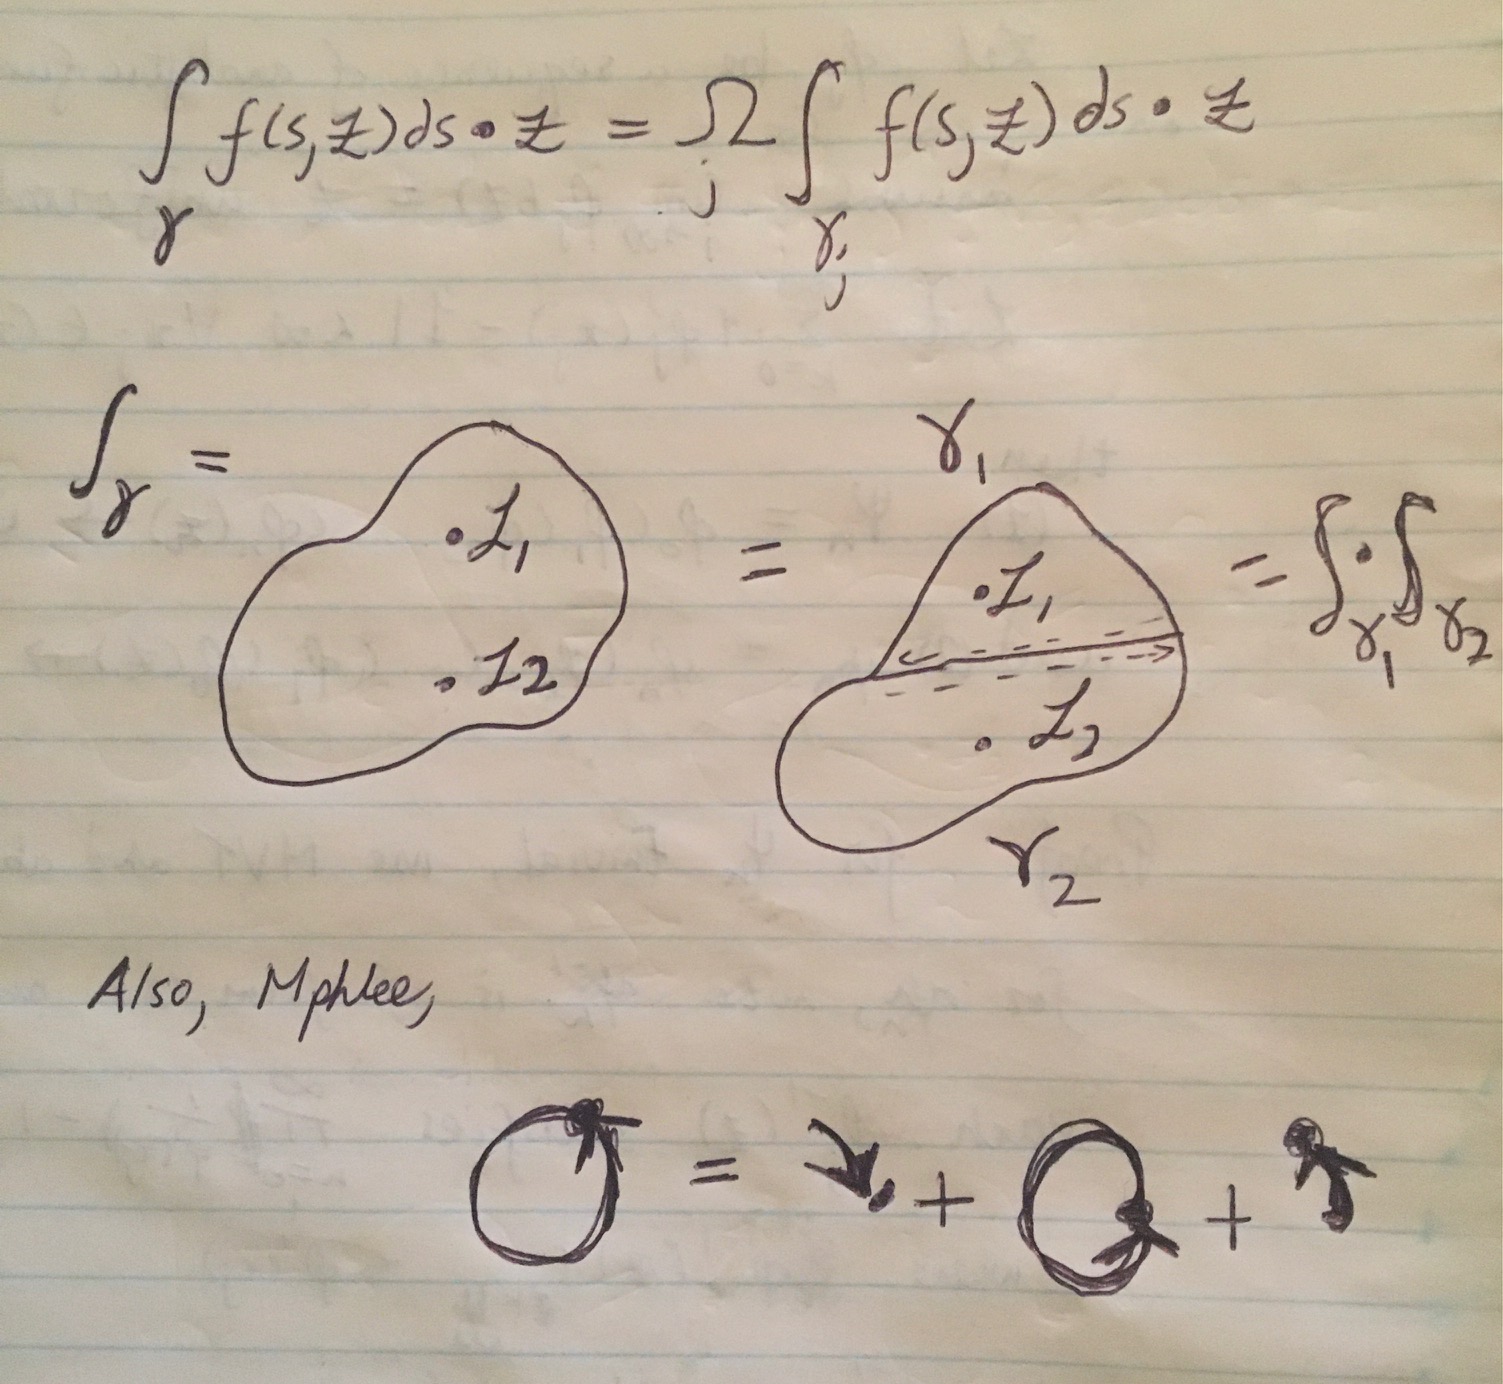 ∫γ f(s,z)ds•z = Ωj ∫γj f(s,z)ds•z
∫γ = •I1 •I2 = γ1 •I1 •I2 γ2 = ∫γ1 • ∫γ2
Also, Mphlee,
= + +